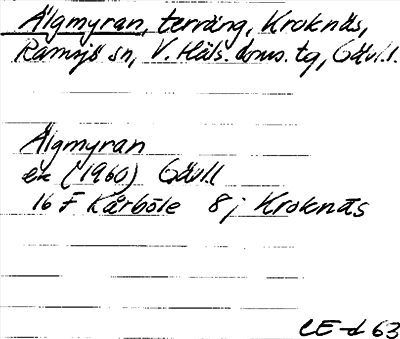 Älgmyran, terräng, Kroknäs,
Ramsjö sn, V. Häls. doms. tg, Gävl.l.
Älgmyran
ek (1960) Gävl.l
16 F Kårböle 8 j Kroknäs
CE-d 63